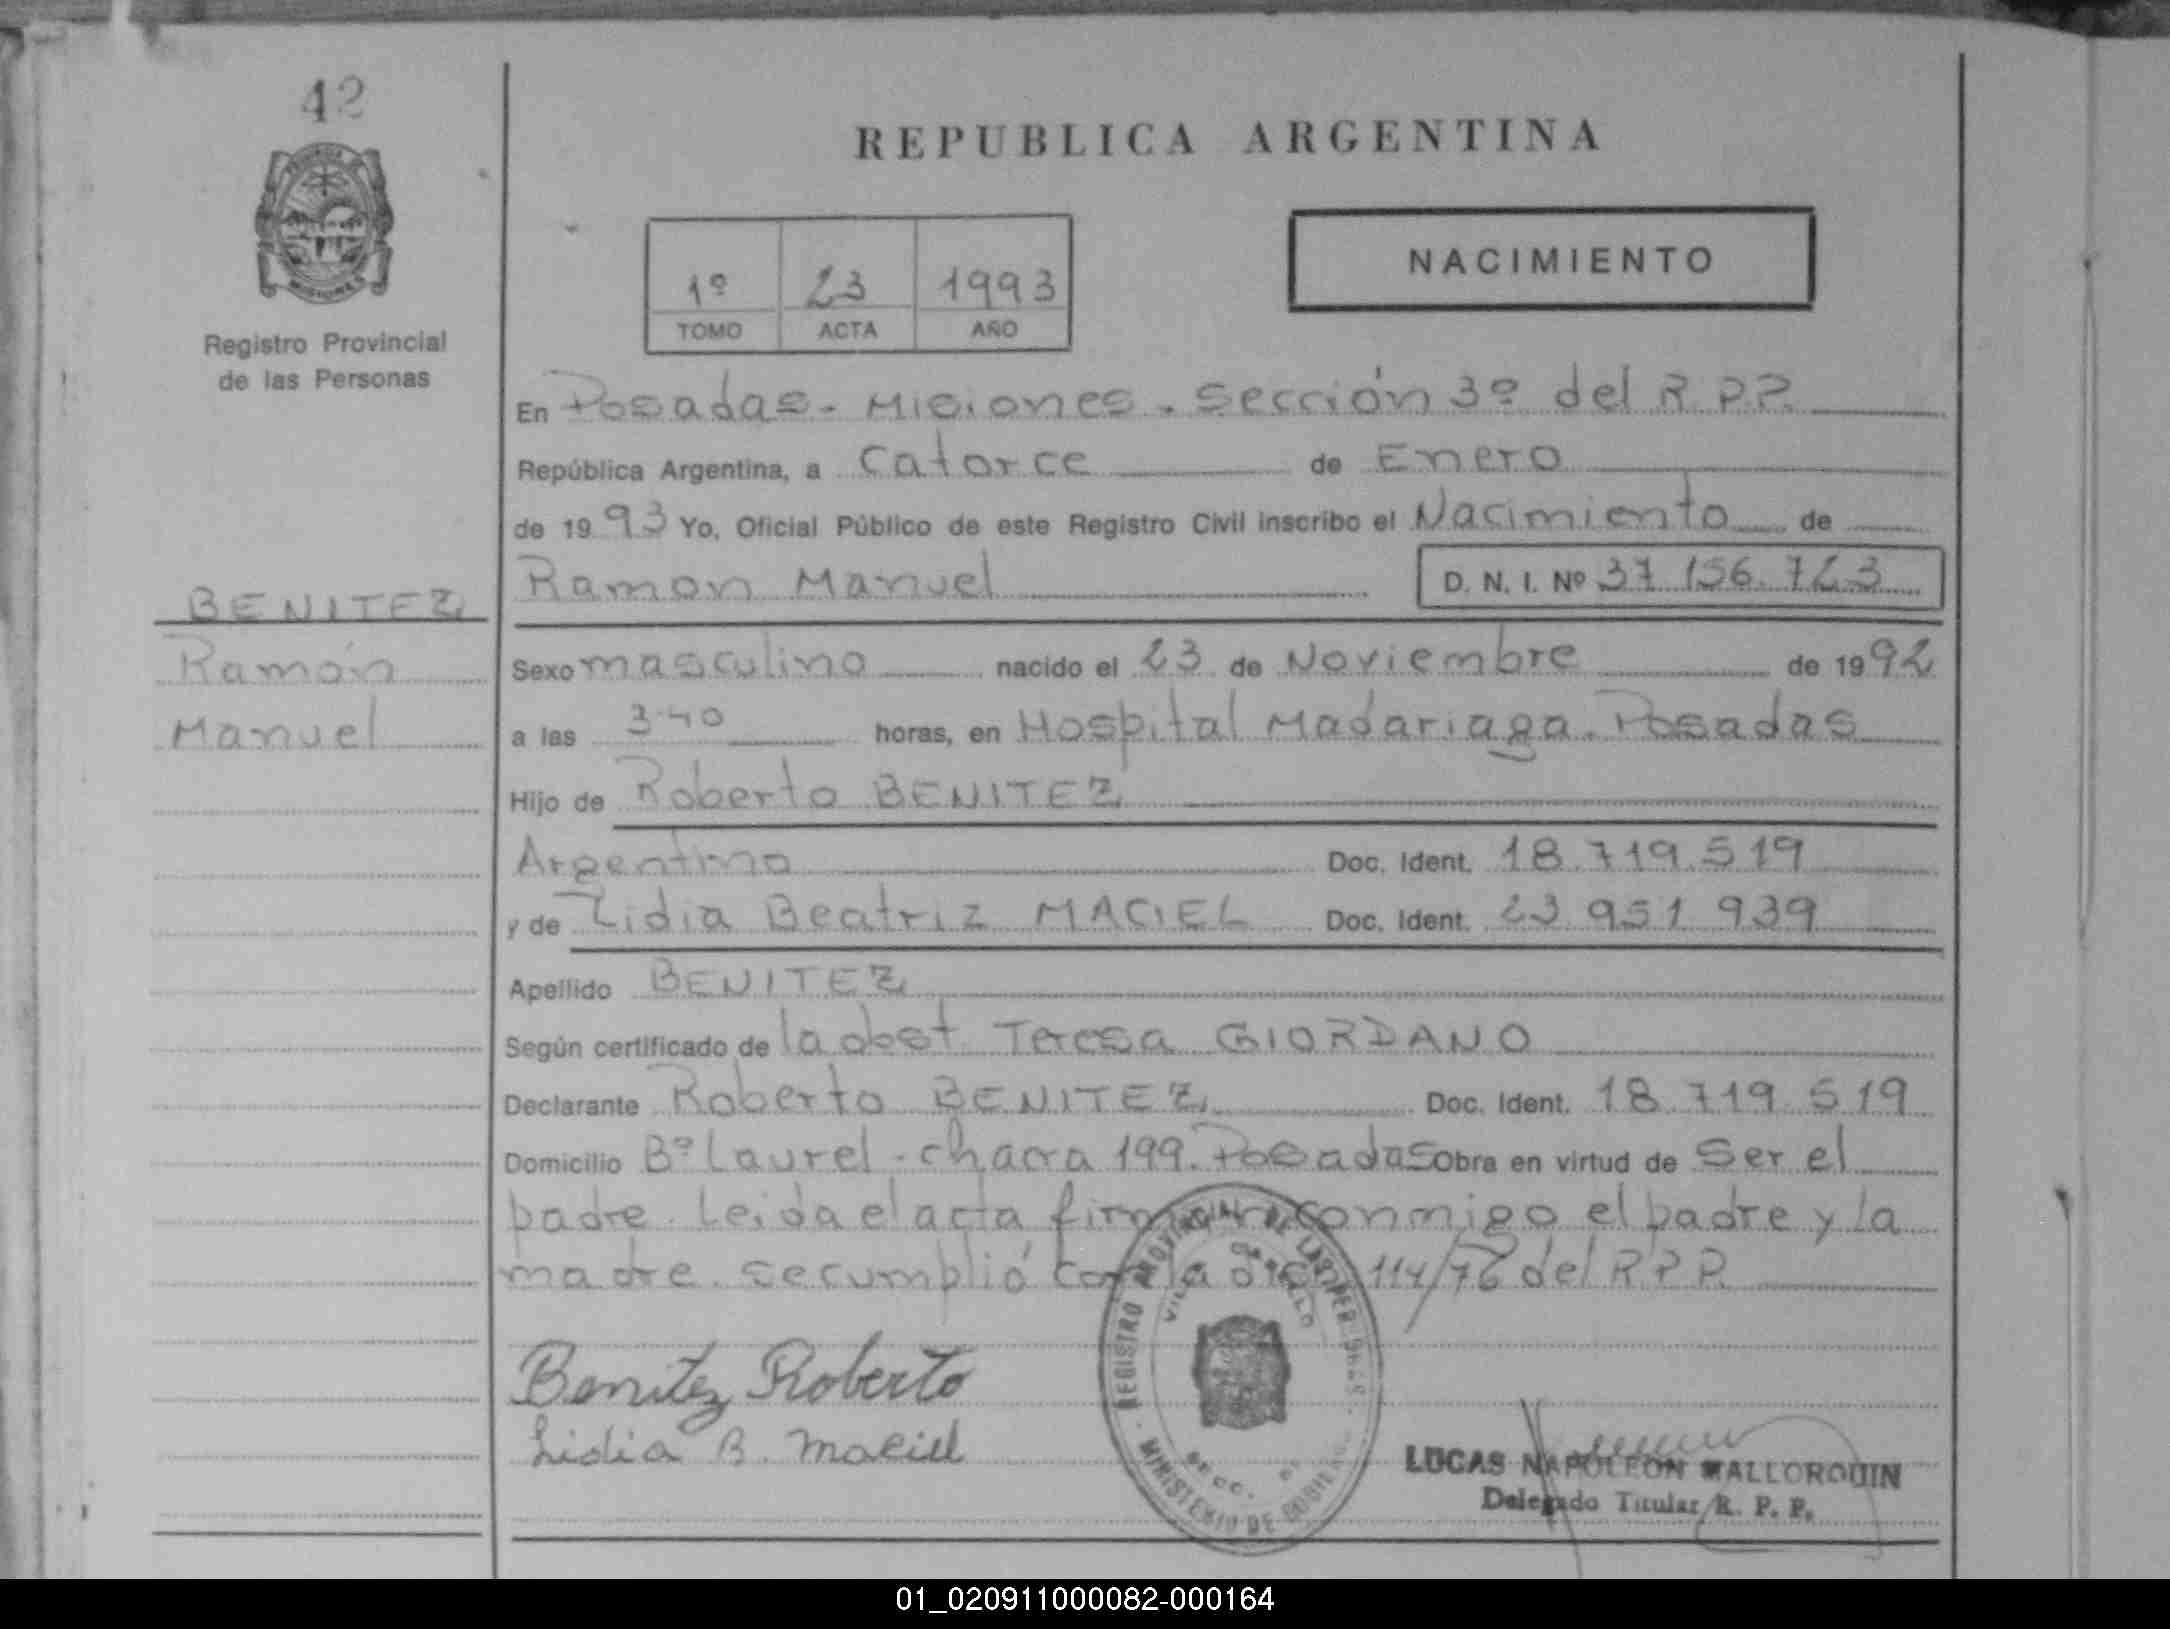 42
REPUBLICA ARGENTINA
NACIMIENTO
1º 23 1993
TOMO ACTA AÑO
Registro Provincial
de las Personas
En Posadas - Misiones - Sección 3º del R.P.P.
República Argentina, a Catorce de Enero
de 1993 Yo, Oficial Público de este Registro Civil inscribo el Nacimiento de
Ramon Manuel D. N. I. Nº 37.156.723
BENITEZ
Ramón
Manuel
Sexo masculino nacido el 23 de Noviembre de 1992
a las 3.40 horas, en Hospital Madariaga. Posadas
Hijo de Roberto BENITEZ
Argentino Doc. Ident. 18.719.519
y de Lidia Beatriz MACIEL Doc. Ident. 23.951.939
Apellido BENITEZ
Según certificado de la obst. Teresa GIORDANO
Declarante Roberto BENITEZ Doc. Ident. 18.719.519
Domicilio Bº Laurel - chacra 199. Posadas Obra en virtud de Ser el
padre. Leida el acta firman conmigo el padre y la
madre. se cumplió con la disp. 114/76 del R.P.P.
Benitez Roberto
Lidia B. Maciel
REGISTRO PROVINCIAL DE LAS PERSONAS
MINISTERIO DE GOBIERNO
LUCAS NAPOLEON MALLORQUIN
Delegado Titular R. P. P.
01_020911000082-000164